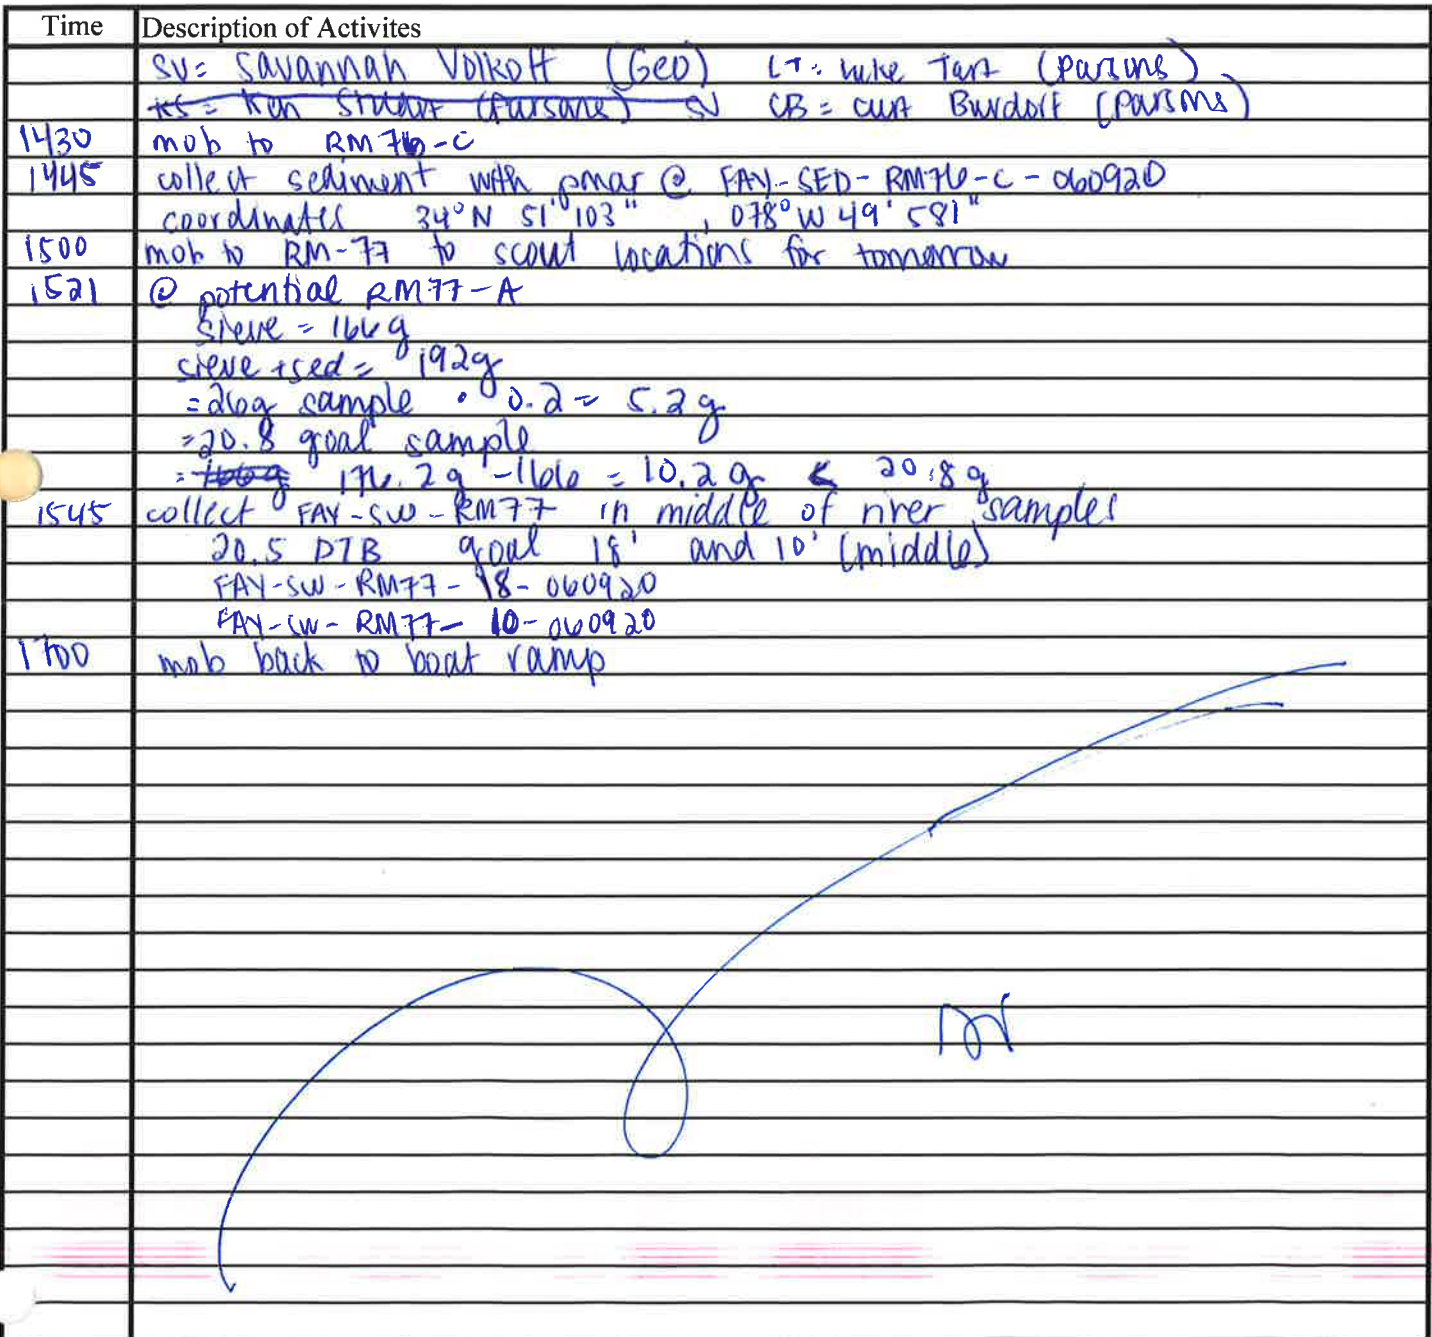 Time Description of Activites
SV= Savannah Volkoff (Geo) LT= Luke Tart (Parsons)
KS = Ken Stuart (Parsons) SV CB = Curt Burdorf (Parsons)
1430 mob to RM76-C
1445 collect sediment with ponar @ FAY-SED-RM76-C-060920
coordinates 34°N 51' 103" , 078°W 49' 581"
1500 mob to RM-77 to scout locations for tomorrow
1521 @ potential RM77-A
sieve = 166g
sieve + sed = 192g
= 26g sample • 0.2 = 5.2g
= 20.8 goal sample
= 166g 176.2g - 166 = 10.2g < 20.8g
1545 collect FAY-SW-RM77 in middle of river samples
20.5 DTB goal 18' and 10' (middle)
FAY-SW-RM77-18-060920
FAY-SW-RM77-10-060920
1700 mob back to boat ramp
SV